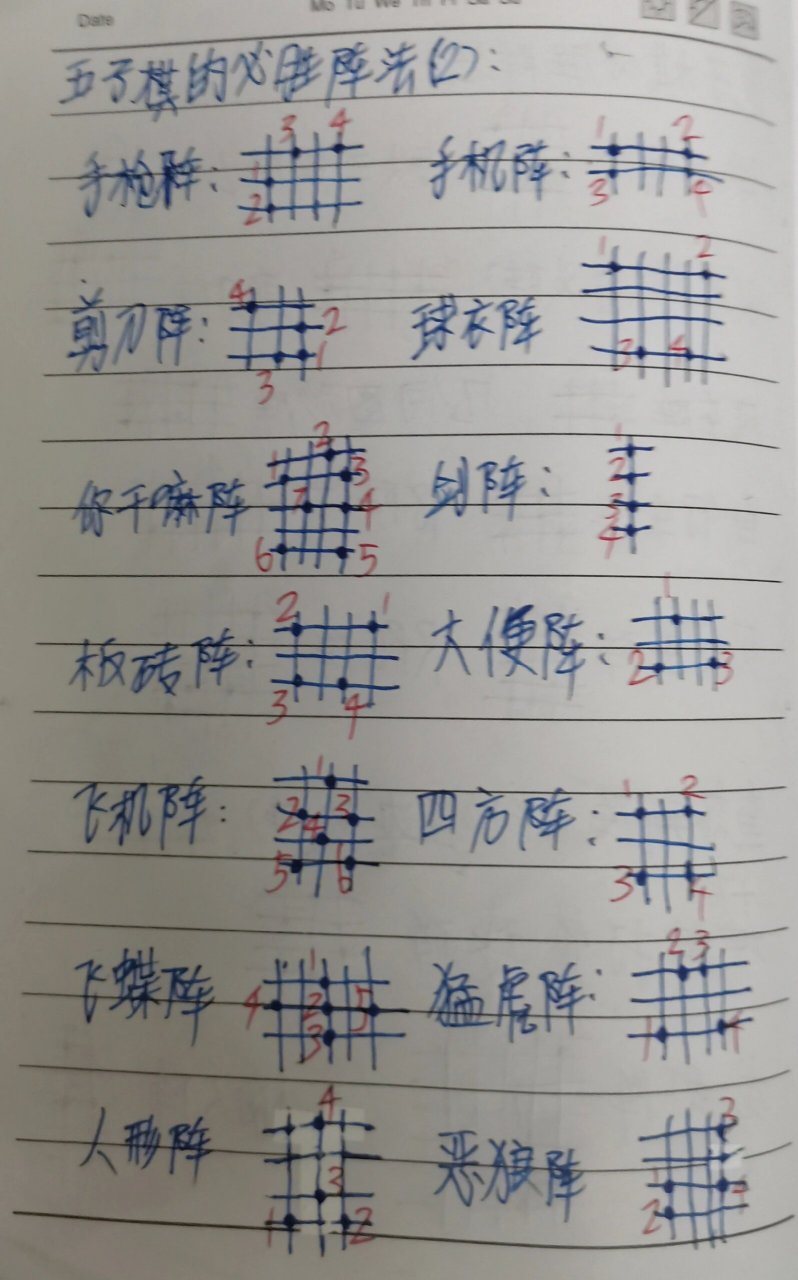 Date Mo Tu We Th Fr Sa Su
五子棋的必胜阵法(2):
手枪阵: 3 4 1 2 手机阵: 1 2 3 4
剪刀阵: 4 2 1 3 球衣阵 1 2 3 4
你干嘛阵 2 1 3 7 4 6 5 剑阵: 1 2 3 4
板砖阵: 2 1 3 4 大便阵: 1 2 3
飞机阵: 1 2 3 4 5 6 四方阵: 1 2 3 4
飞蝶阵 1 4 2 5 3 猛虎阵: 2 3 1 4
人形阵 4 3 1 2 恶狼阵 3 1 4 2